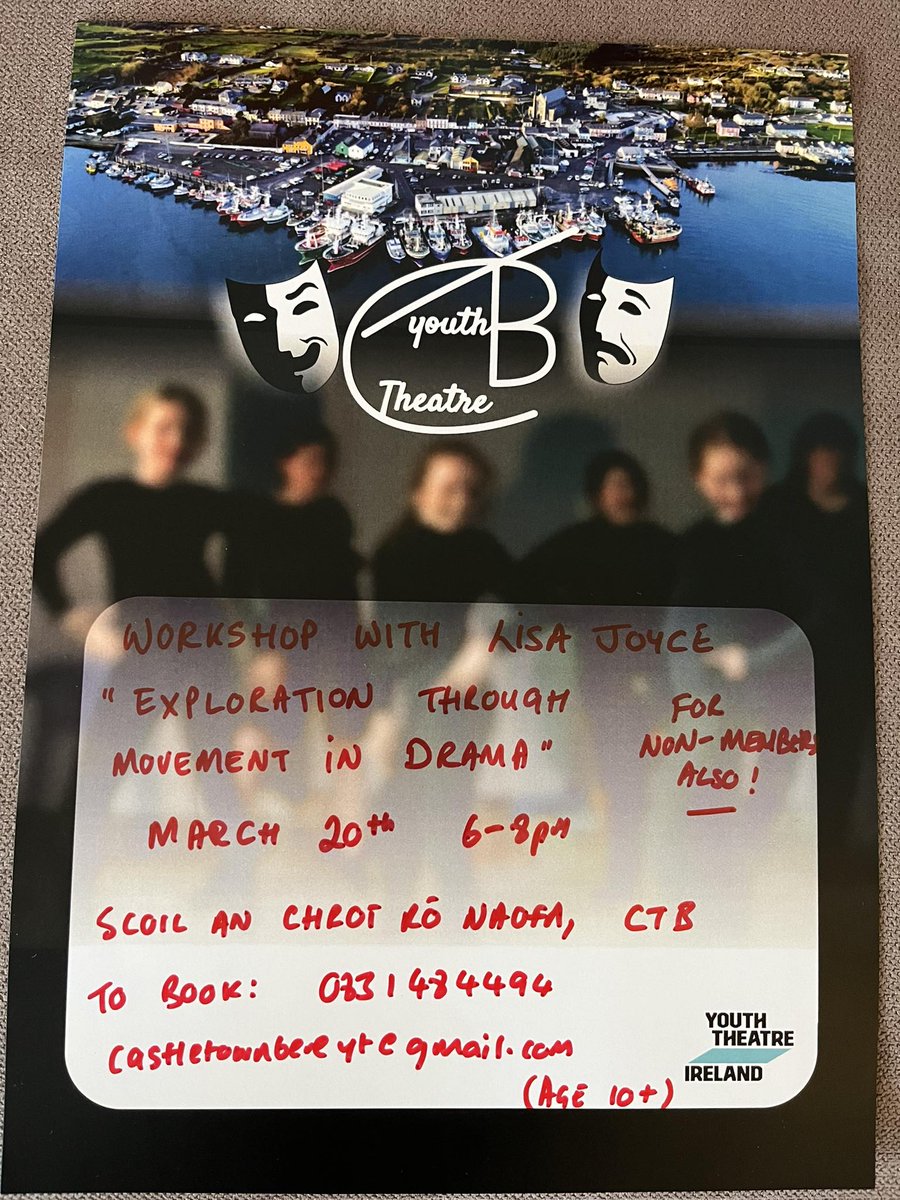 CTB
youth
Theatre
WORKSHOP WITH LISA JOYCE
"EXPLORATION THROUGH
MOVEMENT IN DRAMA"
FOR
NON-MEMBERS
ALSO!
MARCH 20th 6-8pm
SCOIL AN CHROT RÓ NAOFA, CTB
TO BOOK: 0831484494
castletownbereyt@gmail.com
(AGE 10+)
YOUTH
THEATRE
IRELAND